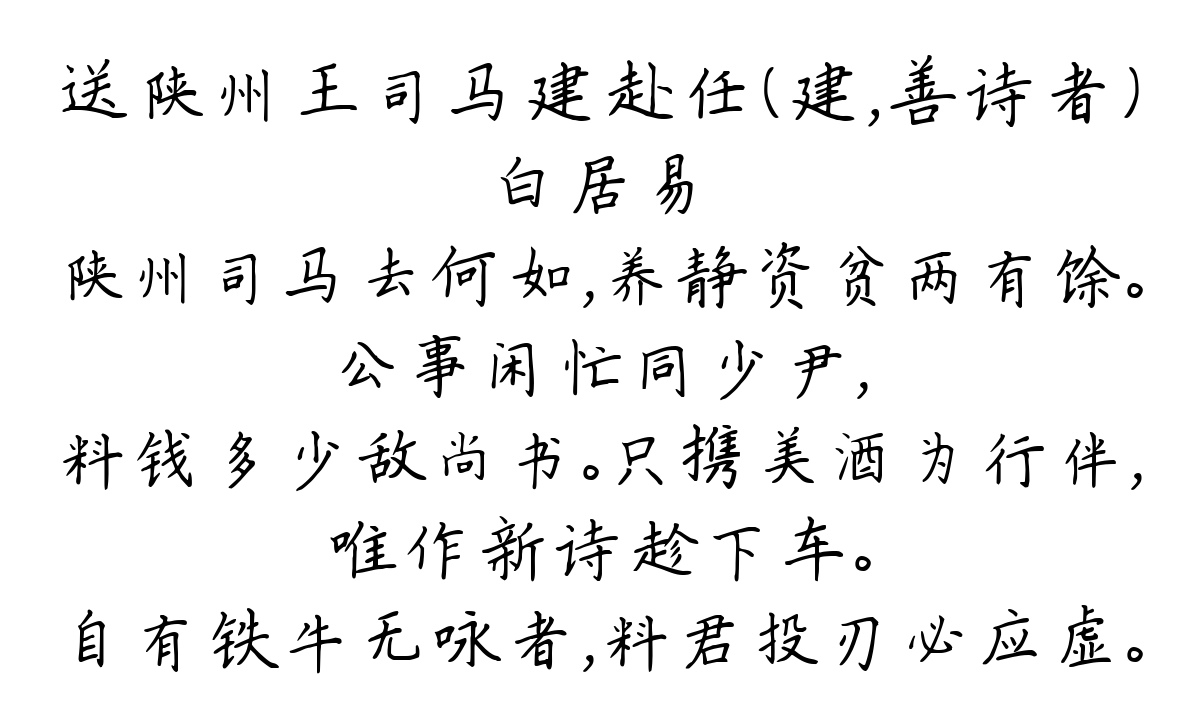 送陕州王司马建赴任(建,善诗者)
白居易
陕州司马去何如,养静资贫两有馀。
公事闲忙同少尹,
料钱多少敌尚书。只携美酒为行伴,
唯作新诗趁下车。
自有铁牛无咏者,料君投刃必应虚。